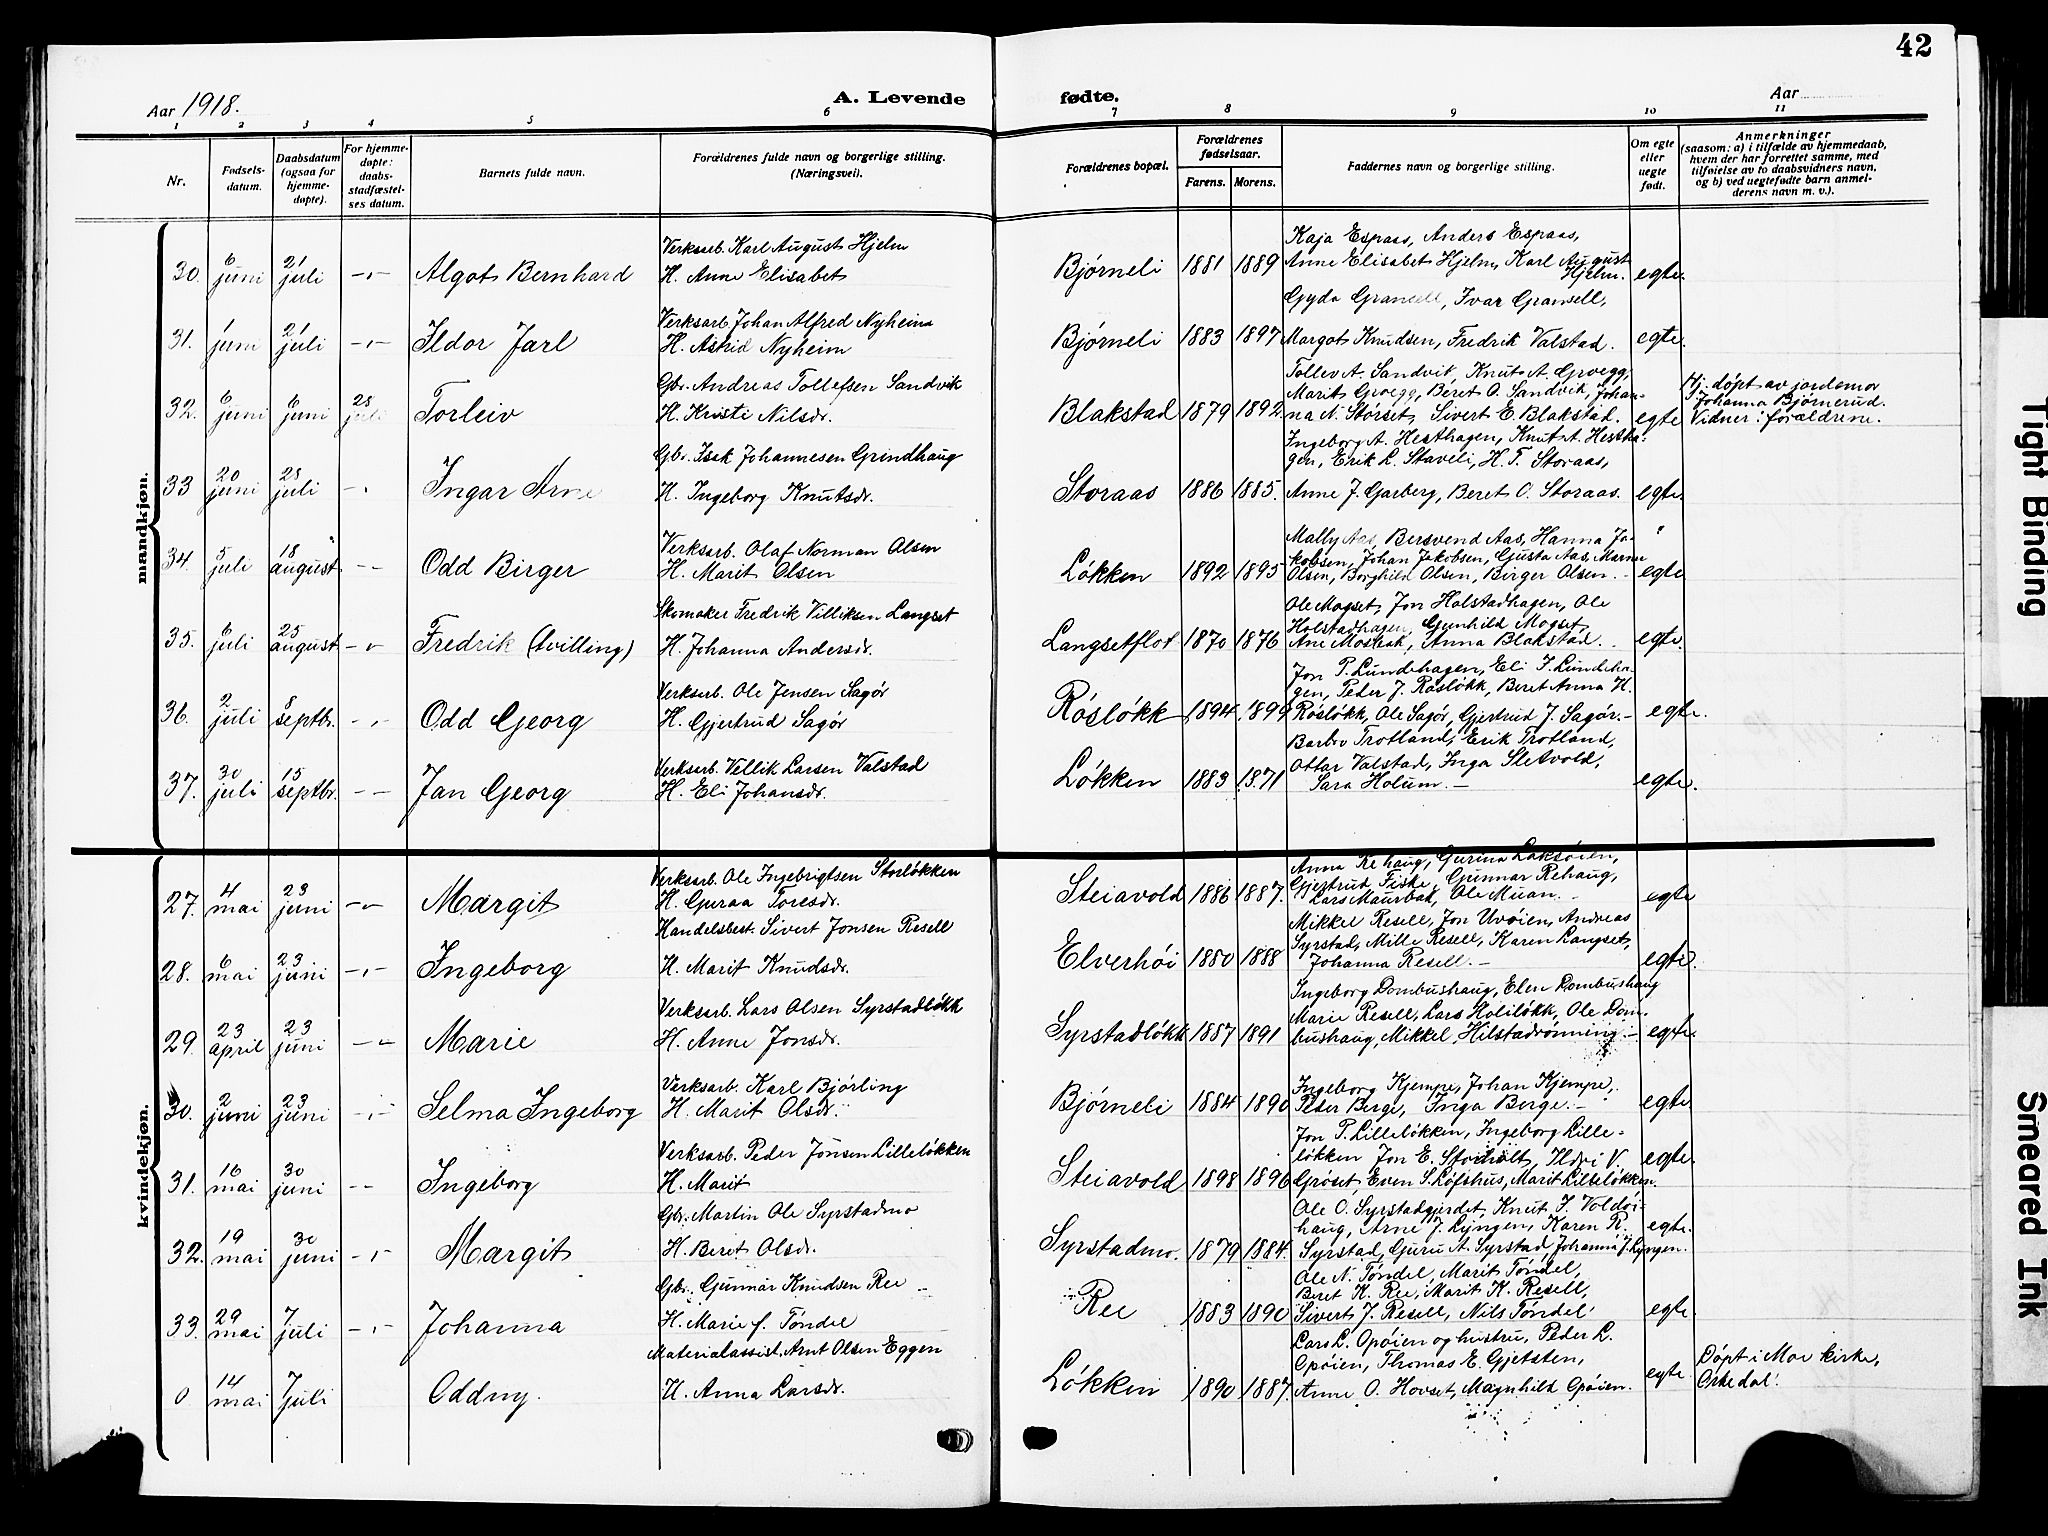 42
Aar 1918.
A. Levende fødte.
Aar
1 2 3 4 5 6 7 8 9 10 11
Nr.
Fødsels-
datum.
Daabsdatum
(ogsaa for
hjemme-
døpte).
For hjemme-
døpte:
daabs-
stadfæstel-
ses datum.
Barnets fulde navn.
Forældrenes fulde navn og borgerlige stilling.
(Næringsvei).
Forældrenes bopæl.
Forældrenes
fødselsaar.
Farens. Morens.
Faddernes navn og borgerlige stilling.
Om egte
eller
uegte
født.
Anmerkninger
(saasom: a) i tilfælde av hjemmedaab,
hvem der har forrettet samme, med
tilføielse av to daabsvidners navn,
og b) ved uegtefødte barn anmel-
derens navn m. v.).
mandkjøn.
30. 6 juni 21 juli Algot Bernhard
Verksarb. Karl August Hjelm
H. Anne Elisabet
Bjørneli 1881 1889
Kaja Espaas, Anders Espaas,
Anne Elisabet Hjelm, Karl August
Hjelm. egte.
31. 1 juni 21 juli Ildor Jarl
Verksarb. Johan Alfred Nyheim
H. Astrid Nyheim
Bjørneli 1883 1897
Gyda Gransell, Ivar Gransell,
Margot Knudsen, Fredrik Valstad. egte.
32. 6 juni 6 juni 28 juli Torleiv
Gbr. Andreas Tollefsen Sandvik
H. Kristi Nilsdr.
Blakstad 1879 1892
Tollev A. Sandvik, Knut A. Groegg,
Marit Groegg, Beret O. Sandvik, Johan-
na N. Storset, Sivert E. Blakstad. egte
Hj. døpt av jordemor
Johanna Bjørnerud.
Vidner: forældrene.
33 20 juni 28 juli Ingar Arne
Gbr. Isak Johannesen Grindhaug
H. Ingeborg Knutsdr.
Storaas 1886 1885.
Ingeborg A. Hesthagen, Knut A. Hestha-
gen, Erik L. Staveli, H. T. Storaas,
Anne J. Garberg, Beret O. Storaas. egte.
34. 5 juli 18 august Odd Birger
Verksarb. Olaf Norman Olsen
H. Marit Olsen
Løkken 1892 1895
Mally Aas, Bersvend Aas, Hanna Ja-
kobsen, Johan Jakobsen, Gusta Aas,
Olsen, Borghild Olsen, Birger Olsen. egte
35. 6 juli 25 august Fredrik (tvilling)
Skomaker Fredrik Villiksen Langset
H. Johanna Andersdr.
Langsetflot 1870 1876
Ole Mogset, Jon Holstadhagen, Ole
Holstadhagen, Gunhild Mogset,
Ane Mosbak, Anna Blakstad. egte.
36. 2 juli 8 septbr. Odd Georg
Verksarb. Ole Jensen Sagør
H. Gjertrud Sagør
Røsløkk 1894 1899
Jon P. Lundehagen, Eli I. Lundeha-
gen, Peder J. Røsløkk, Beret Anna H.
Røsløkk, Ole Sagør, Gjertrud J. Sagør. egte.
37. 30 juli 15 septbr. Jan Georg
Verksarb. Vellik Larsen Valstad
H. Eli Johansdr.
Løkken 1883 1871
Barbro Trotland, Erik Trotland,
Ottar Valstad, Inga Sletvold,
Sara Holum. egte.
kvindekjøn.
27. 4 mai 23 juni Margit
Verksarb. Ole Ingebrigtsen Storløkken
H. Guraa Toresdr.
Steiavold 1886 1887.
Anna Rehaug, Gurina Laksøien,
Gjertrud Fiske, Gunnar Rehaug,
Lars Maurbak, Ole Muan. egte
28. 6 mai 23 juni Ingeborg
Handelsbest. Sivert Jonsen Resell
H. Marit Knudsdr.
Elverhøi 1880 1888
Mikkel Resell, Jon Uvøien, Andreas
Syrstad, Mille Resell, Karen Langset,
Johanna Resell. egte.
29. 23 april 23 juni Marie
Verksarb. Lars Olsen Syrstadløkk
H. Anne Jonsdr.
Syrstadløkk 1887 1891
Ingeborg Dombushaug, Elen Dombushaug
Marie Resell, Lars Holiløkk, Ole Dom-
bushaug, Mikkel Hilstadrønning. egte.
30. 2 juni 23 juni Selma Ingeborg
Verksarb. Karl Bjørling
H. Marit Olsdr.
Bjørneli 1884 1890
Ingeborg Kjempe, Johan Kjempe,
Peder Berge, Inga Berge. egte
31. 16 mai 30 juni Ingeborg
Verksarb. Peder Jonsen Lilleløkken
H. Marit
Steiavold 1898 1896
Jon P. Lilleløkken, Ingeborg Lille-
løkken Jon E. Storholt, Ildri V. egte.
Grøset Even S. Løfshus, Marit Lilleløkken.
32. 19 mai 30 juni Margit
Gbr. Martin Ole Syrstadmo
H. Beret Olsdr.
Syrstadmo. 1879 1884.
Ole O. Syrstadgjerdet, Knut I. Voldøi-
haug, Arne J. Lyngen, Karen R. egte.
Syrstad, Guru A. Syrstad, Johanna J. Lyngen.
33. 29 mai 7 juli Johanna
Gbr. Gunnar Knudsen Ree
H. Marie f. Tøndel
Ree 1883 1890
Ole N. Tøndel, Marit Tøndel,
Beret K. Ree, Marit K. Resell,
Sivert J. Resell, Nils Tøndel egte.
0 14 mai 7 juli Oddny.
Materialassist. Arnt Olsen Eggen
H. Anna Larsdr.
Løkken 1890 1887.
Lars L. Opøien og hustru, Peder L.
Opøien, Thomas E. Gjetsten,
Anne O. Hovset, Magnhild Opøien. egte
Døpt i Moe kirke,
Orkedal.
Tight Binding
Smeared Ink